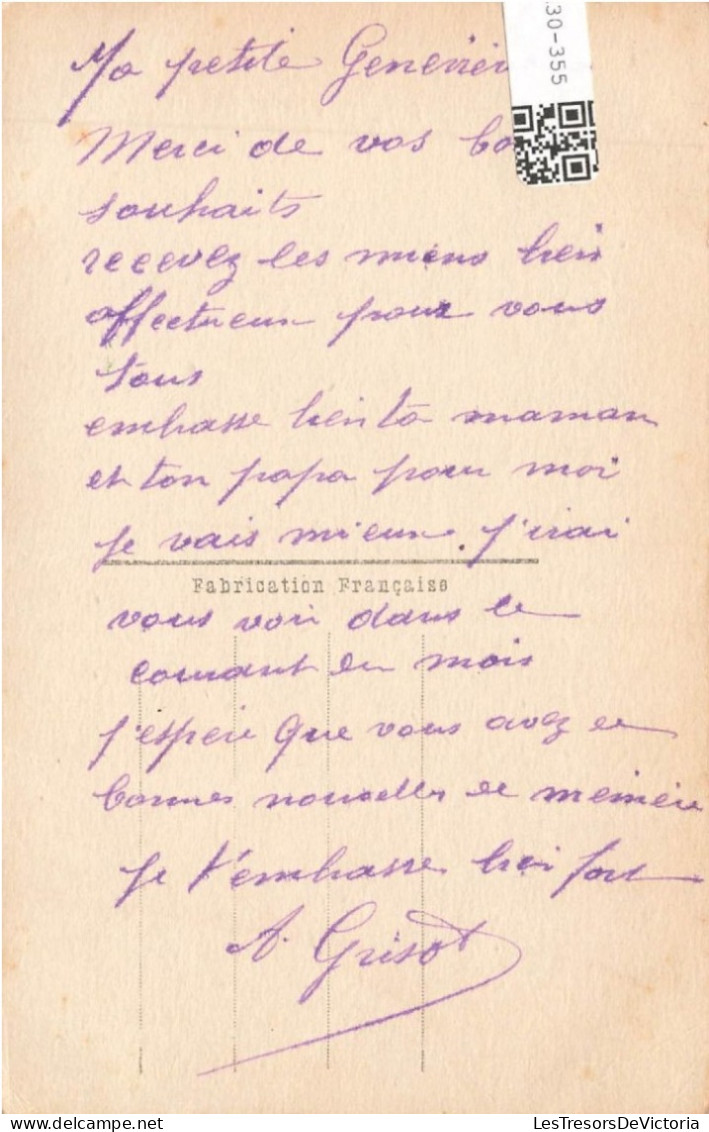 .30-355
Ma petite Geneviè
Merci de vos bo
souhaits
recevez les miens bien
affectueux pour vous
tous
embrasse bien ta maman
et ton papa pour moi
Je vais mieux. J'irai
Fabrication Française
vous voir dans le
courant du mois
j'espère que vous avez de
bonnes nouvelles de mémère
Je t'embrasse bien fort
A. Grisot
delcampe.net
LesTresorsDeVictoria